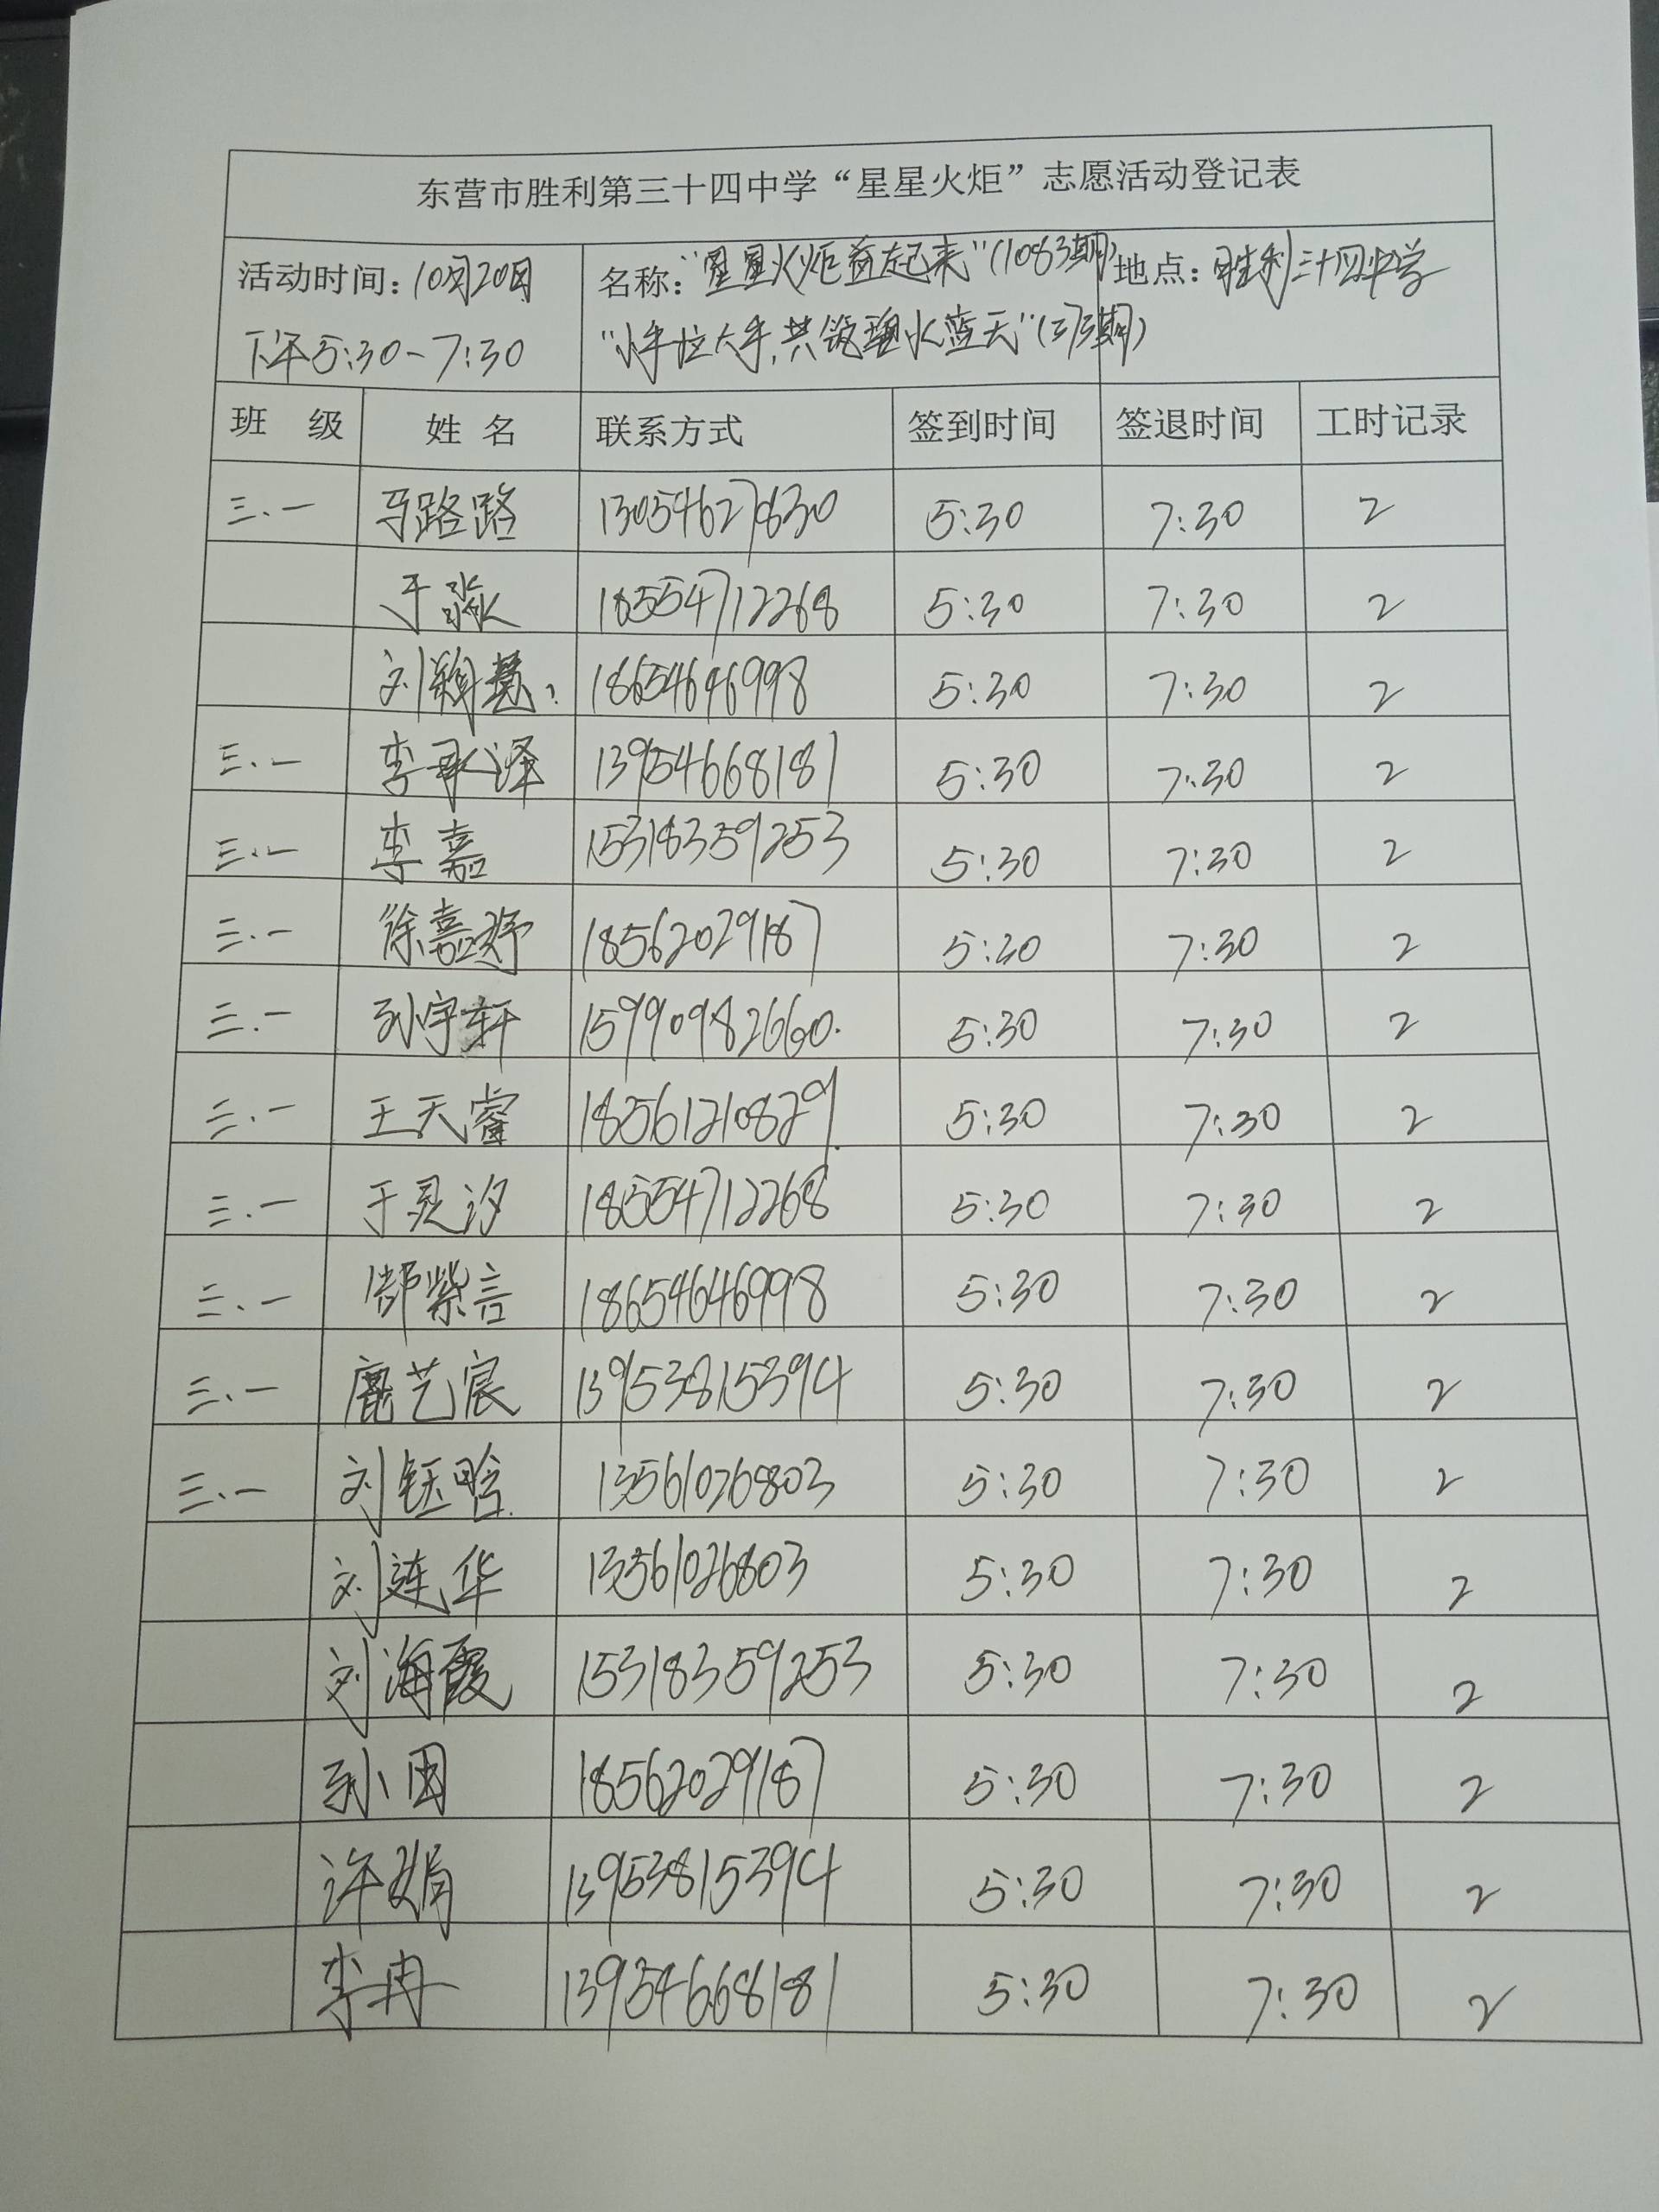 东营市胜利第三十四中学“星星火炬”志愿活动登记表
活动时间：10月20日 名称：“星星火炬 起来”（1083期） 地点：胜利三十四中学
下午5:30-7:30 “小手拉大手，共筑 水蓝天”（ 期）
班 级 姓 名 联系方式 签到时间 签退时间 工时记录
三.一 马路路 13054627630 5:30 7:30 2
于淼 18554712268 5:30 7:30 2
刘颖慧 18654646998 5:30 7:30 2
三.一 李承泽 13954668181 5:30 7:30 2
三.一 李嘉 15318359253 5:30 7:30 2
三.一 徐嘉妤 18562029187 5:30 7:30 2
三.一 孙宇轩 15990982660 5:30 7:30 2
三.一 王天睿 18561210829 5:30 7:30 2
三.一 于灵汐 18554712268 5:30 7:30 2
三.一 郜紫言 18654646998 5:30 7:30 2
三.一 鹿艺宸 13953815394 5:30 7:30 2
三.一 刘钰晗 13561026803 5:30 7:30 2
刘连华 13561026803 5:30 7:30 2
刘海霞 15318359253 5:30 7:30 2
孙田 18562029187 5:30 7:30 2
许娟 13953815394 5:30 7:30 2
李冉 13954668181 5:30 7:30 2